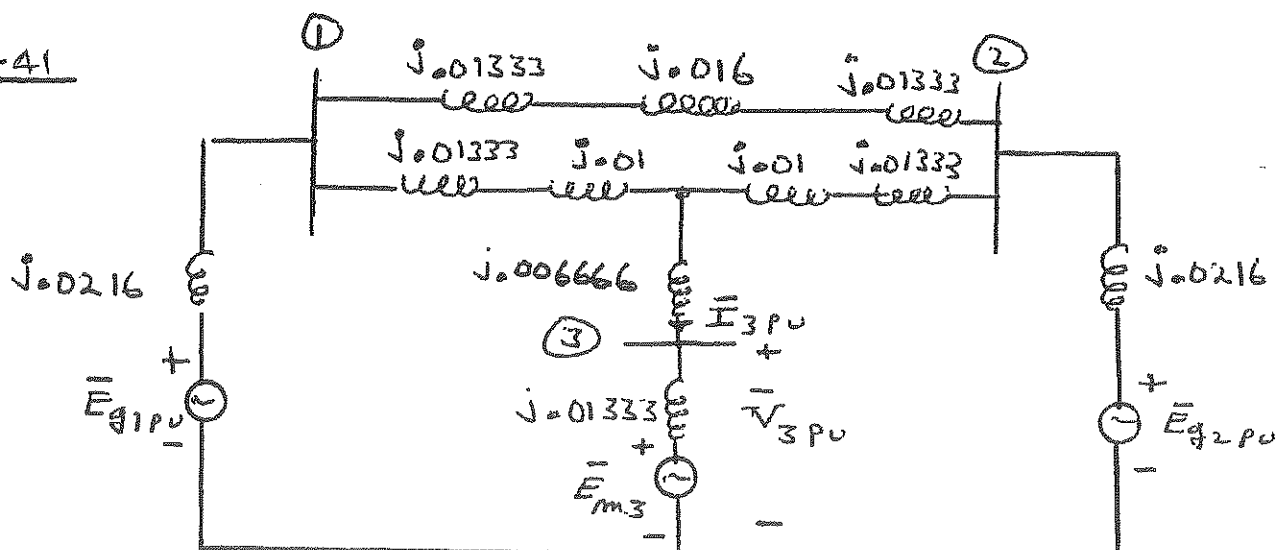 -41
①
②
j.01333
j.016
j.01333
j.01333
j.01
j.01
j.01333
j.0216
j.006666
j.0216
Ī3pu
③
+
+
+
Ēg1pu
-
j.01333
-
V̄3pu
+
Ēg2pu
-
Ēm3
-
-